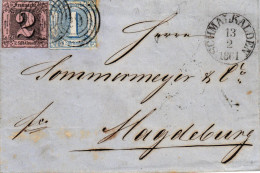 2
1
SCHMALKALDEN
13
2
1861
Herren
Sommermeyer & Co
fr.
Magdeburg